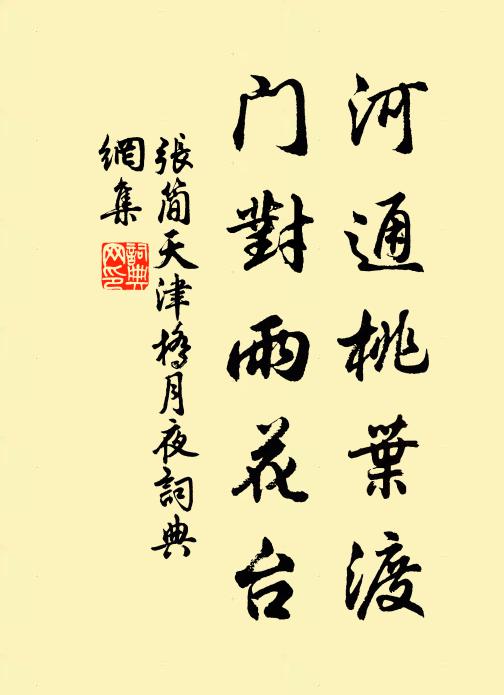 河通桃葉渡
门對雨花台
張简天津橋月夜詞典
網集
詞典
网印